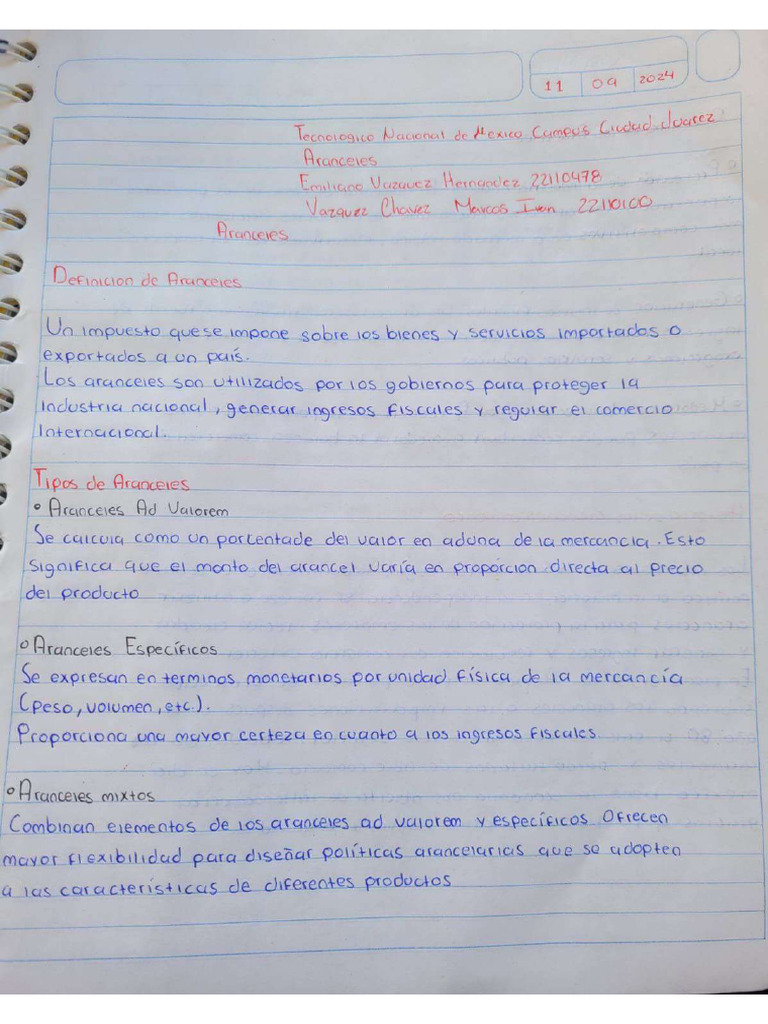 11 09 2024
Tecnologico Nacional de Mexico Campus Ciudad Juarez
Aranceles
Emiliano Vazquez Hernandez 22110478
Vazquez Chavez Marcos Ivan 22110100
Aranceles
Definicion de Aranceles
Un impuesto que se impone sobre los bienes y servicios importados o
exportados a un país.
Los aranceles son utilizados por los gobiernos para proteger la
industria nacional, generar ingresos fiscales y regular el comercio
internacional.
Tipos de Aranceles
• Aranceles Ad Valorem
Se calcula como un porcentade del valor en aduna de la mercancia. Esto
significa que el monto del arancel varía en proporcion directa al precio
del producto
• Aranceles Específicos
Se expresan en terminos monetarios por unidad física de la mercancía
(peso, volumen, etc.).
Proporciona una mayor certeza en cuanto a los ingresos fiscales
• Aranceles mixtos
Combinan elementos de los aranceles ad valorem y específicos Ofrecen
mayor flexibilidad para diseñar políticas arancelarias que se adopten
a las características de diferentes productos